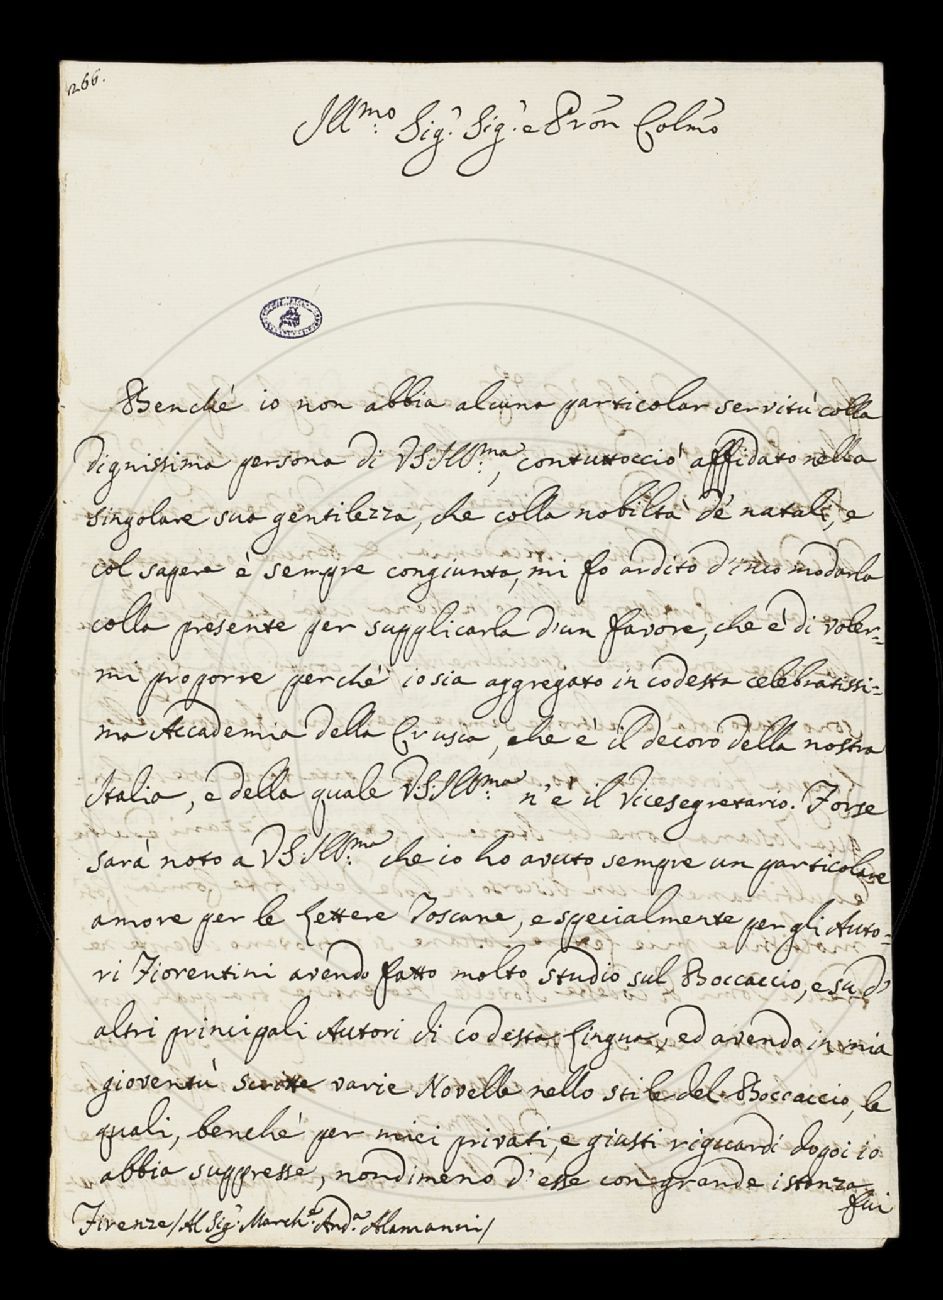 266.
Ill.mo Sig.r Sig.r e Pron Colmo
Benchè io non abbia alcuna particolar servitù colla
dignissima persona di VS. Ill.ma, contuttocciò affidato nella
singolare sua gentilezza, che colla nobiltà de' natali, e
col sapere è sempre congiunta, mi fo ardito d'incomodarla
colla presente per supplicarla d'un favore, che è di voler-
mi proporre perchè io sia aggregato in codesta celebratissi-
ma Accademia della Crusca, che è il decoro della nostra
Italia, e della quale VS. Ill.ma n'è il Vicesegretario. Forse
sarà noto a VS Ill.ma che io ho avuto sempre un particolare
amore per le Lettere Toscane, e specialmente per gli Auto-
ri Fiorentini avendo fatto molto studio sul Boccaccio, e su d'
altri principali Autori di codesta Lingua, ed avendo in mia
gioventù scritte varie Novelle nello stile del Boccaccio, le
quali, benchè per miei privati, e giusti riguardi dopoi io
abbia suppresse, nondimeno d'esse con grande istanza
fui
Firenze / Al Sig.r March.e And.a Alamanni /